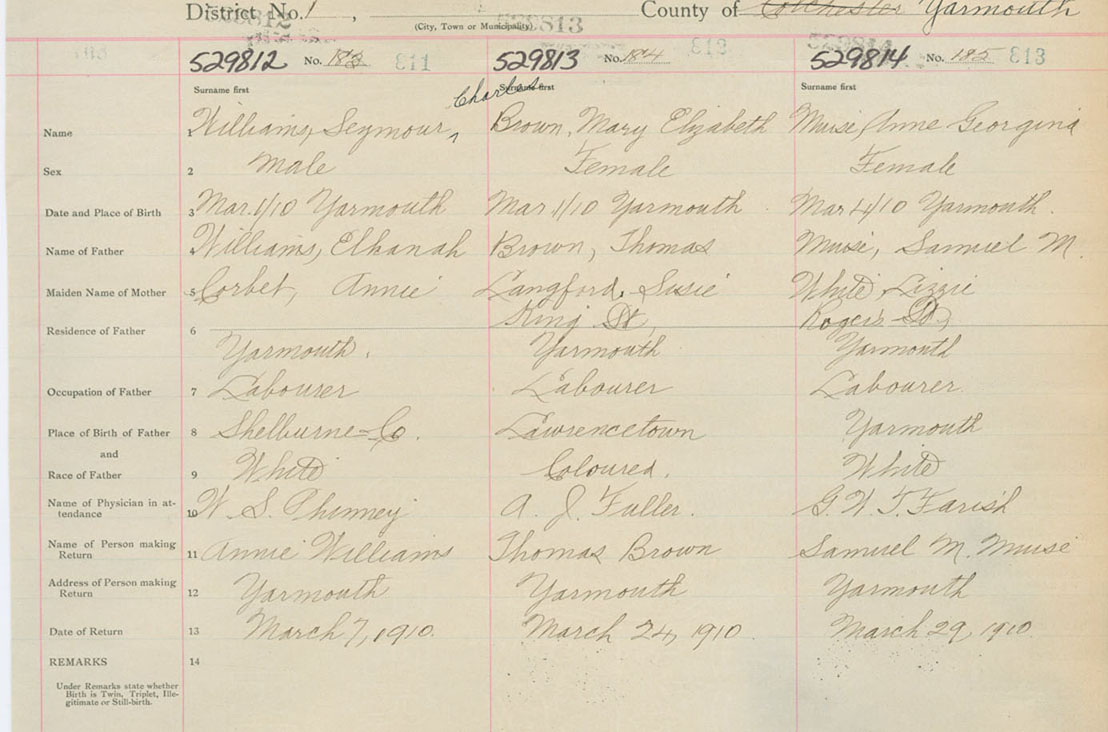 District No. 1 , County of Colchester Yarmouth
(City, Town or Municipality)
529813
529812 No. 183 811 529813 No. 184 812 529814 No. 185 813
Surname first Surname first Surname first
Charles
Name 1 Williams, Seymour ^ Brown, Mary Elizabeth Muise, Anne Georgina
Sex 2 Male Female Female
Date and Place of Birth 3 Mar. 1/10 Yarmouth Mar 1/10 Yarmouth Mar 4/10 Yarmouth.
Name of Father 4 Williams, Elkanah Brown, Thomas Muise, Samuel M.
Maiden Name of Mother 5 Corbet, Annie Langford, Susie White, Lizzie
King St, Rogers St,
Residence of Father 6 Yarmouth. Yarmouth Yarmouth
Occupation of Father 7 Labourer Labourer Labourer.
Place of Birth of Father 8 Shelburne Co. Lawrencetown Yarmouth
and
Race of Father 9 White Coloured. White
Name of Physician in at-
tendance 10 W. S. Phinney A. J. Fuller. G. W. T. Farish
Name of Person making
Return 11 Annie Williams Thomas Brown Samuel M. Muise
Address of Person making
Return 12 Yarmouth Yarmouth Yarmouth
Date of Return 13 March 7, 1910. March 24, 1910. March 29, 1910.
REMARKS 14
Under Remarks state whether
Birth is Twin, Triplet, Ille-
gitimate or Still-birth.